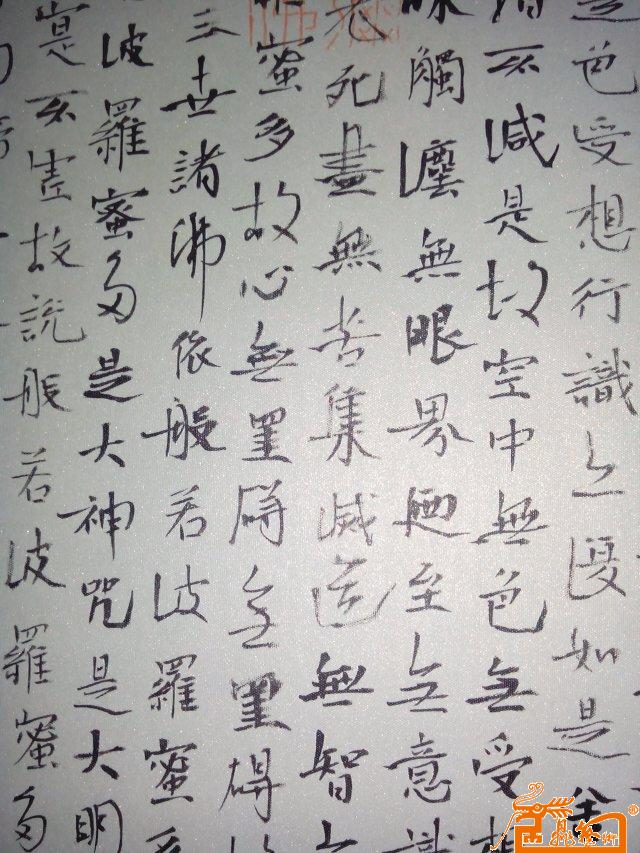 是色受想行識亦復如是舍
不減是故空中無色無受想
味觸塵無眼界廼至無意識
死盡無苦集滅道無智
蜜多故心無罣礙無罣礙故
三世諸佛依般若波羅蜜多
波羅蜜多是大神咒是大明
實不虛故說般若波羅蜜多